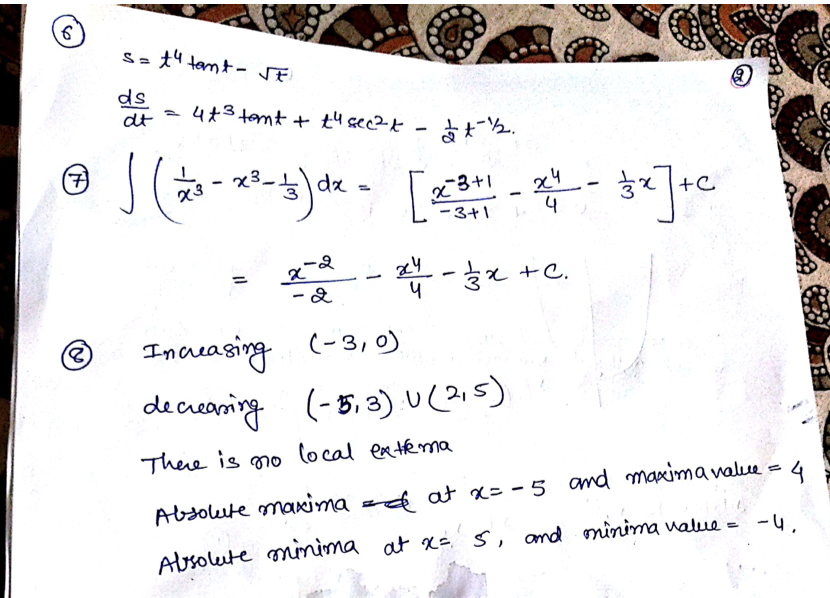 ⑥
②
s = t⁴ tan t - √t
ds/dt = 4t³ tan t + t⁴ sec² t - 1/2 t^-1/2.
⑦ ∫ (1/x³ - x³ - 1/3) dx = [x^-3+1/-3+1 - x⁴/4 - 1/3 x] + C
= x^-2/-2 - x⁴/4 - 1/3 x + C.
⑧ Increasing (-3, 0)
decreasing (-5, 3) ∪ (2, 5)
There is no local extrema
Absolute maxima at x = -5 and maxima value = 4
Absolute minima at x = 5, and minima value = -4.